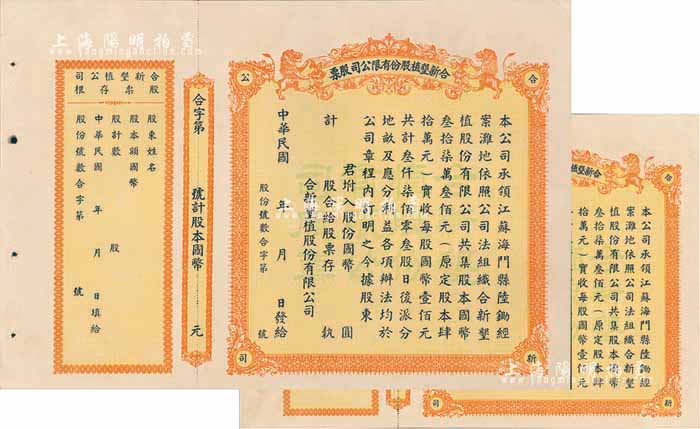 合新墾植股份有限公司股票
合
公
司
新
本公司承領江蘇海門縣陸鋤經
案灘地依照公司法組織合新墾
植股份有限公司共集股本國幣
叁拾柒萬叁佰元（原定股本肆
拾萬元）實收每股國幣壹佰元
共計叁仟柒佰零叁股日後派分
地畝及應分利益各項辦法均於
公司章程內訂明之今據股東
君坿入股份國幣 圓
計 股合給股票存 執
合新墾植股份有限公司
中華民國 年 月 日發給
股份號數合字第 號
合字第 號計股本國幣 元
合新墾植公司
股票存根
股東姓名
股本額國幣
股計數 股
中華民國 年 月 日填給
股份號數合字第 號
本公司承領江蘇海門縣陸鋤經
案灘地依照公司法組織合新墾
植股份有限公司共集股本國幣
叁拾柒萬叁佰元（原定股本肆
拾萬元）實收每股國幣壹佰元
合
新
司
上海陽明拍賣